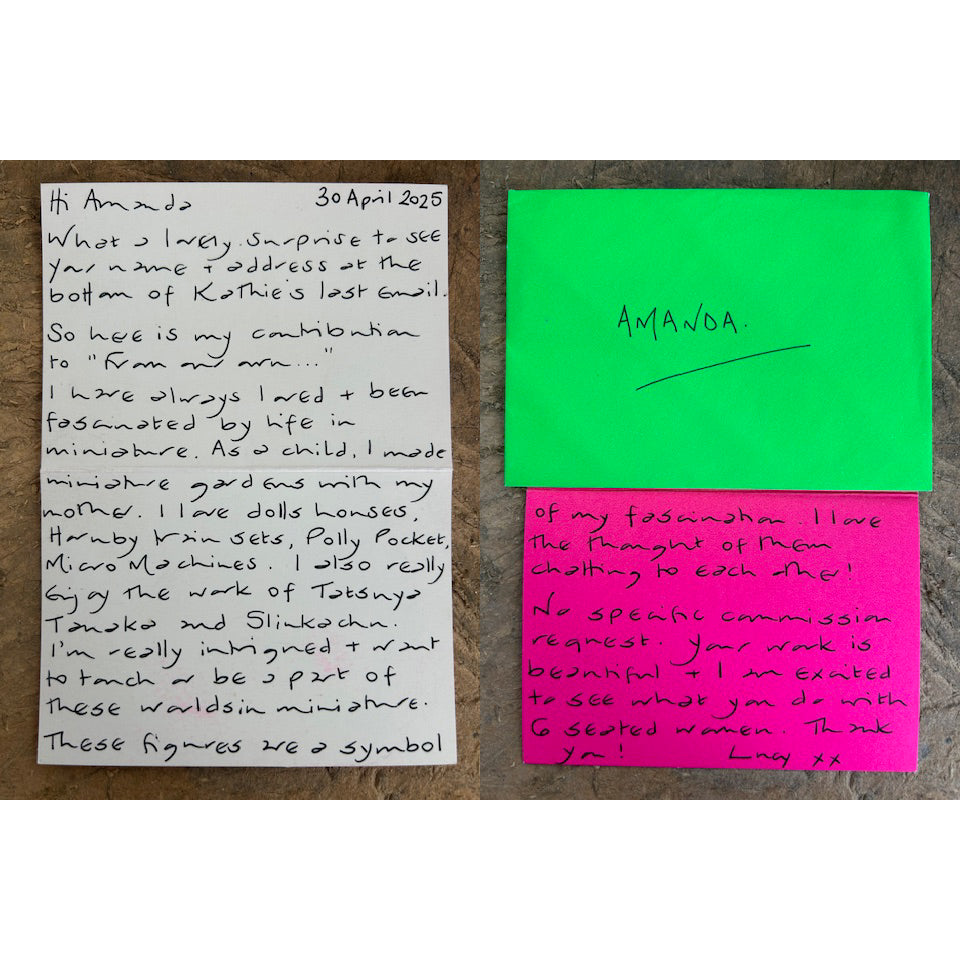 Hi Amanda 30 April 2025
What a lovely surprise to see
your name + address at the
bottom of Kathie's last email.
So here is my contribution
to "From our own..."
I have always loved + been
fascinated by life in
miniature. As a child, I made
miniature gardens with my
mother. I love dolls houses,
Hornby train sets, Polly Pocket,
Micro Machines. I also really
Enjoy the work of Tatsuya
Tanaka and Slinkachu.
I'm really intrigued + want
to touch or be a part of
these worlds in miniature.
These figures are a symbol
AMANDA.
of my fascination. I love
the thought of them
chatting to each other!
No specific commission
request. Your work is
beautiful + I am excited
to see what you do with
6 seated women. Thank
you! Lucy xx